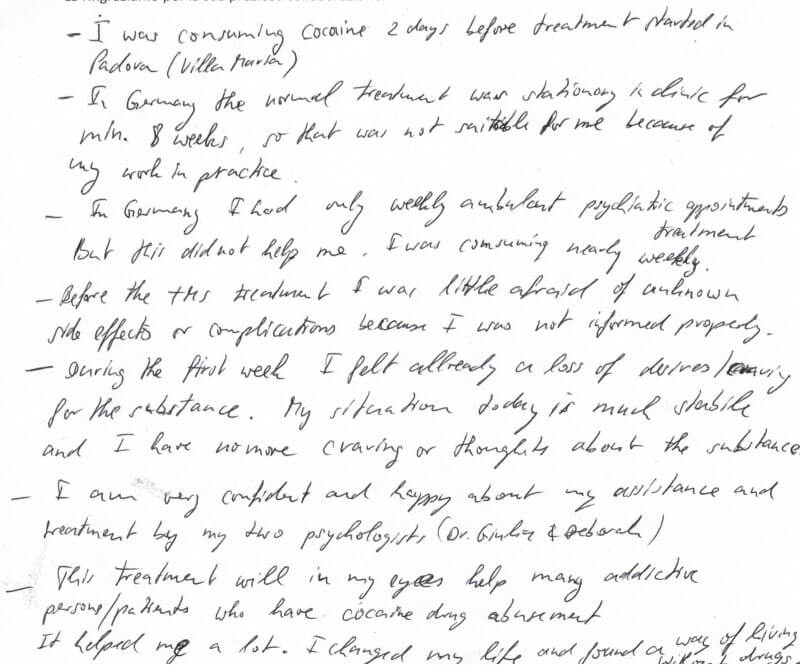 - I was consuming Cocaine 2 days before treatment started in
Padova (Villa Maria)
- In Germany the normal treatment was stationary in clinic for
min. 8 weeks, so that was not suitible for me because of
my work in practice.
- In Germany I had only weekly ambulant psychiatric appointments
treatment
But this did not help me. I was consuming nearly weekly.
- Before the TMS treatment I was little afraid of unknown
side effects or complications because I was not informed properly.
- During the first week I felt allready a loss of desires/craving
for the substance. My situation today is much stabile
and I have no more craving or thoughts about the substance.
- I am very confident and happy about my assistance and
treatment by my two psychologists (Dr. Giulia & Deborah)
- This treatment will in my eyes help many addictive
persons/patients who have cocaine drug abusement
It helped me a lot. I changed my life and found a way of living
without drugs.